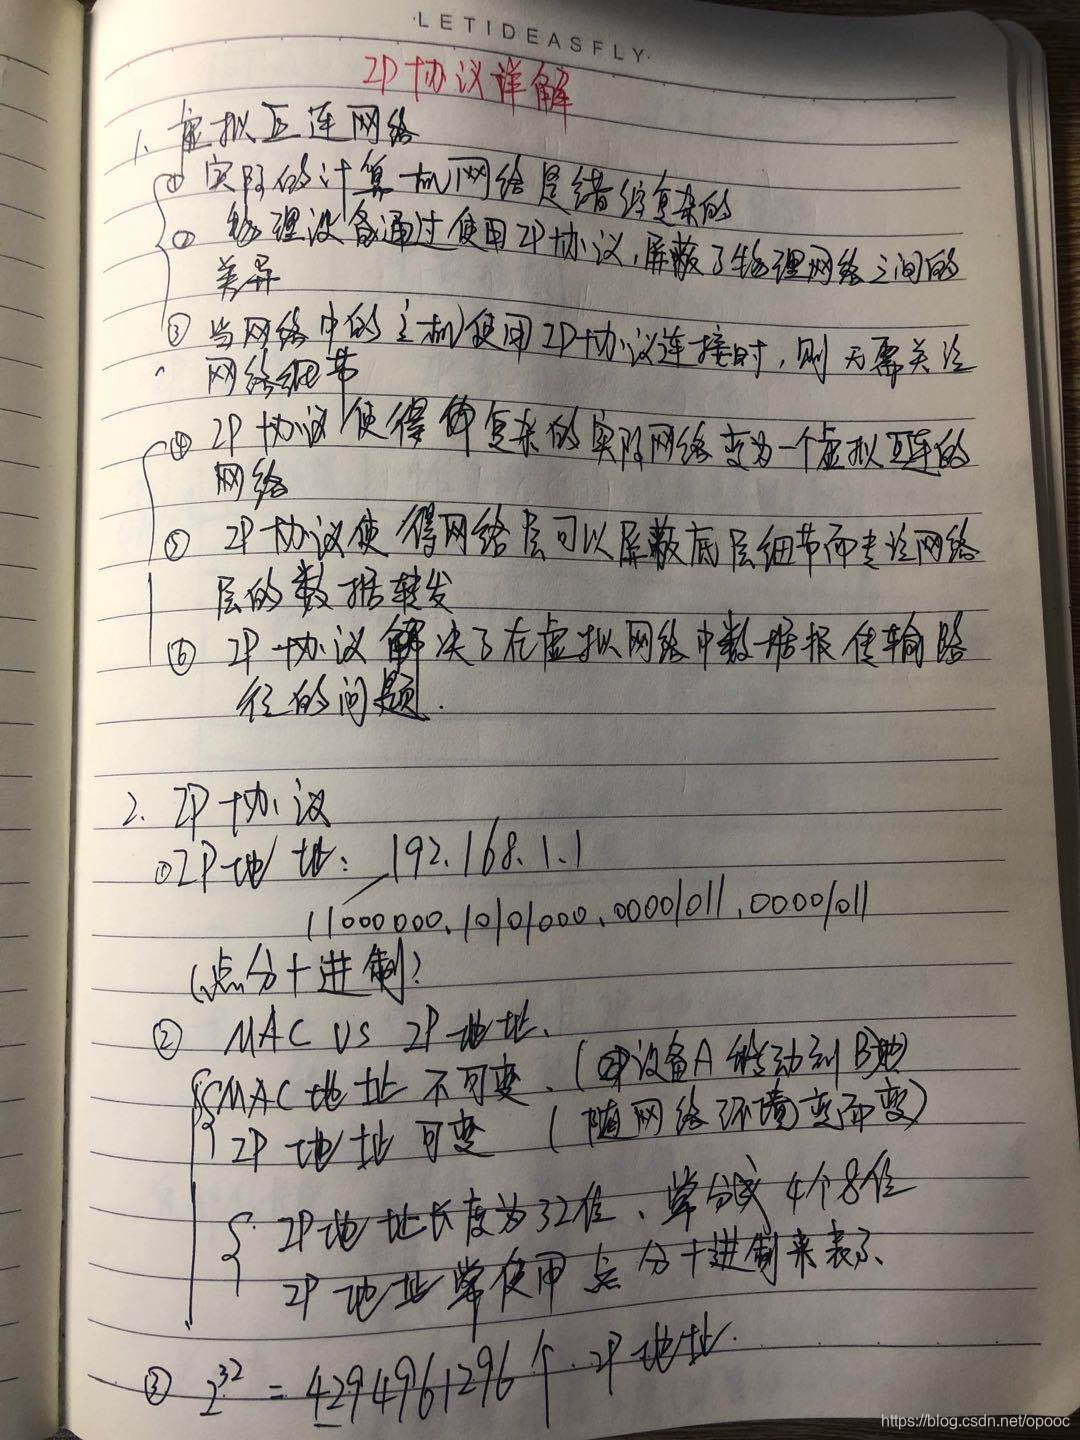 LETIDEASFLY
IP协议详解
1. 虚拟互连网络
① 实际的计算机网络是错综复杂的
② 物理设备通过使用IP协议,屏蔽了物理网络之间的
差异
③ 当网络中的主机使用IP协议连接时,则无需关注
网络细节
④ IP协议使得复杂的实际网络变为一个虚拟互连的
网络
⑤ IP协议使得网络层可以屏蔽底层细节而专注网络
层的数据转发
⑥ IP协议解决了在虚拟网络中数据报传输路
径的问题.
2. IP协议
①IP地址: 192.168.1.1
11000000.10101000.00001011.00001011
(点分十进制)
② MAC VS IP地址.
MAC地址不可变.(设备A移动到B地)
IP地址可变 (随网络环境变而变)
IP地址长度为32位、常分成4个8位
IP地址常使用点分十进制来表示
③ 2^32 = 4294961296个.IP地址.
https://blog.csdn.net/opooc